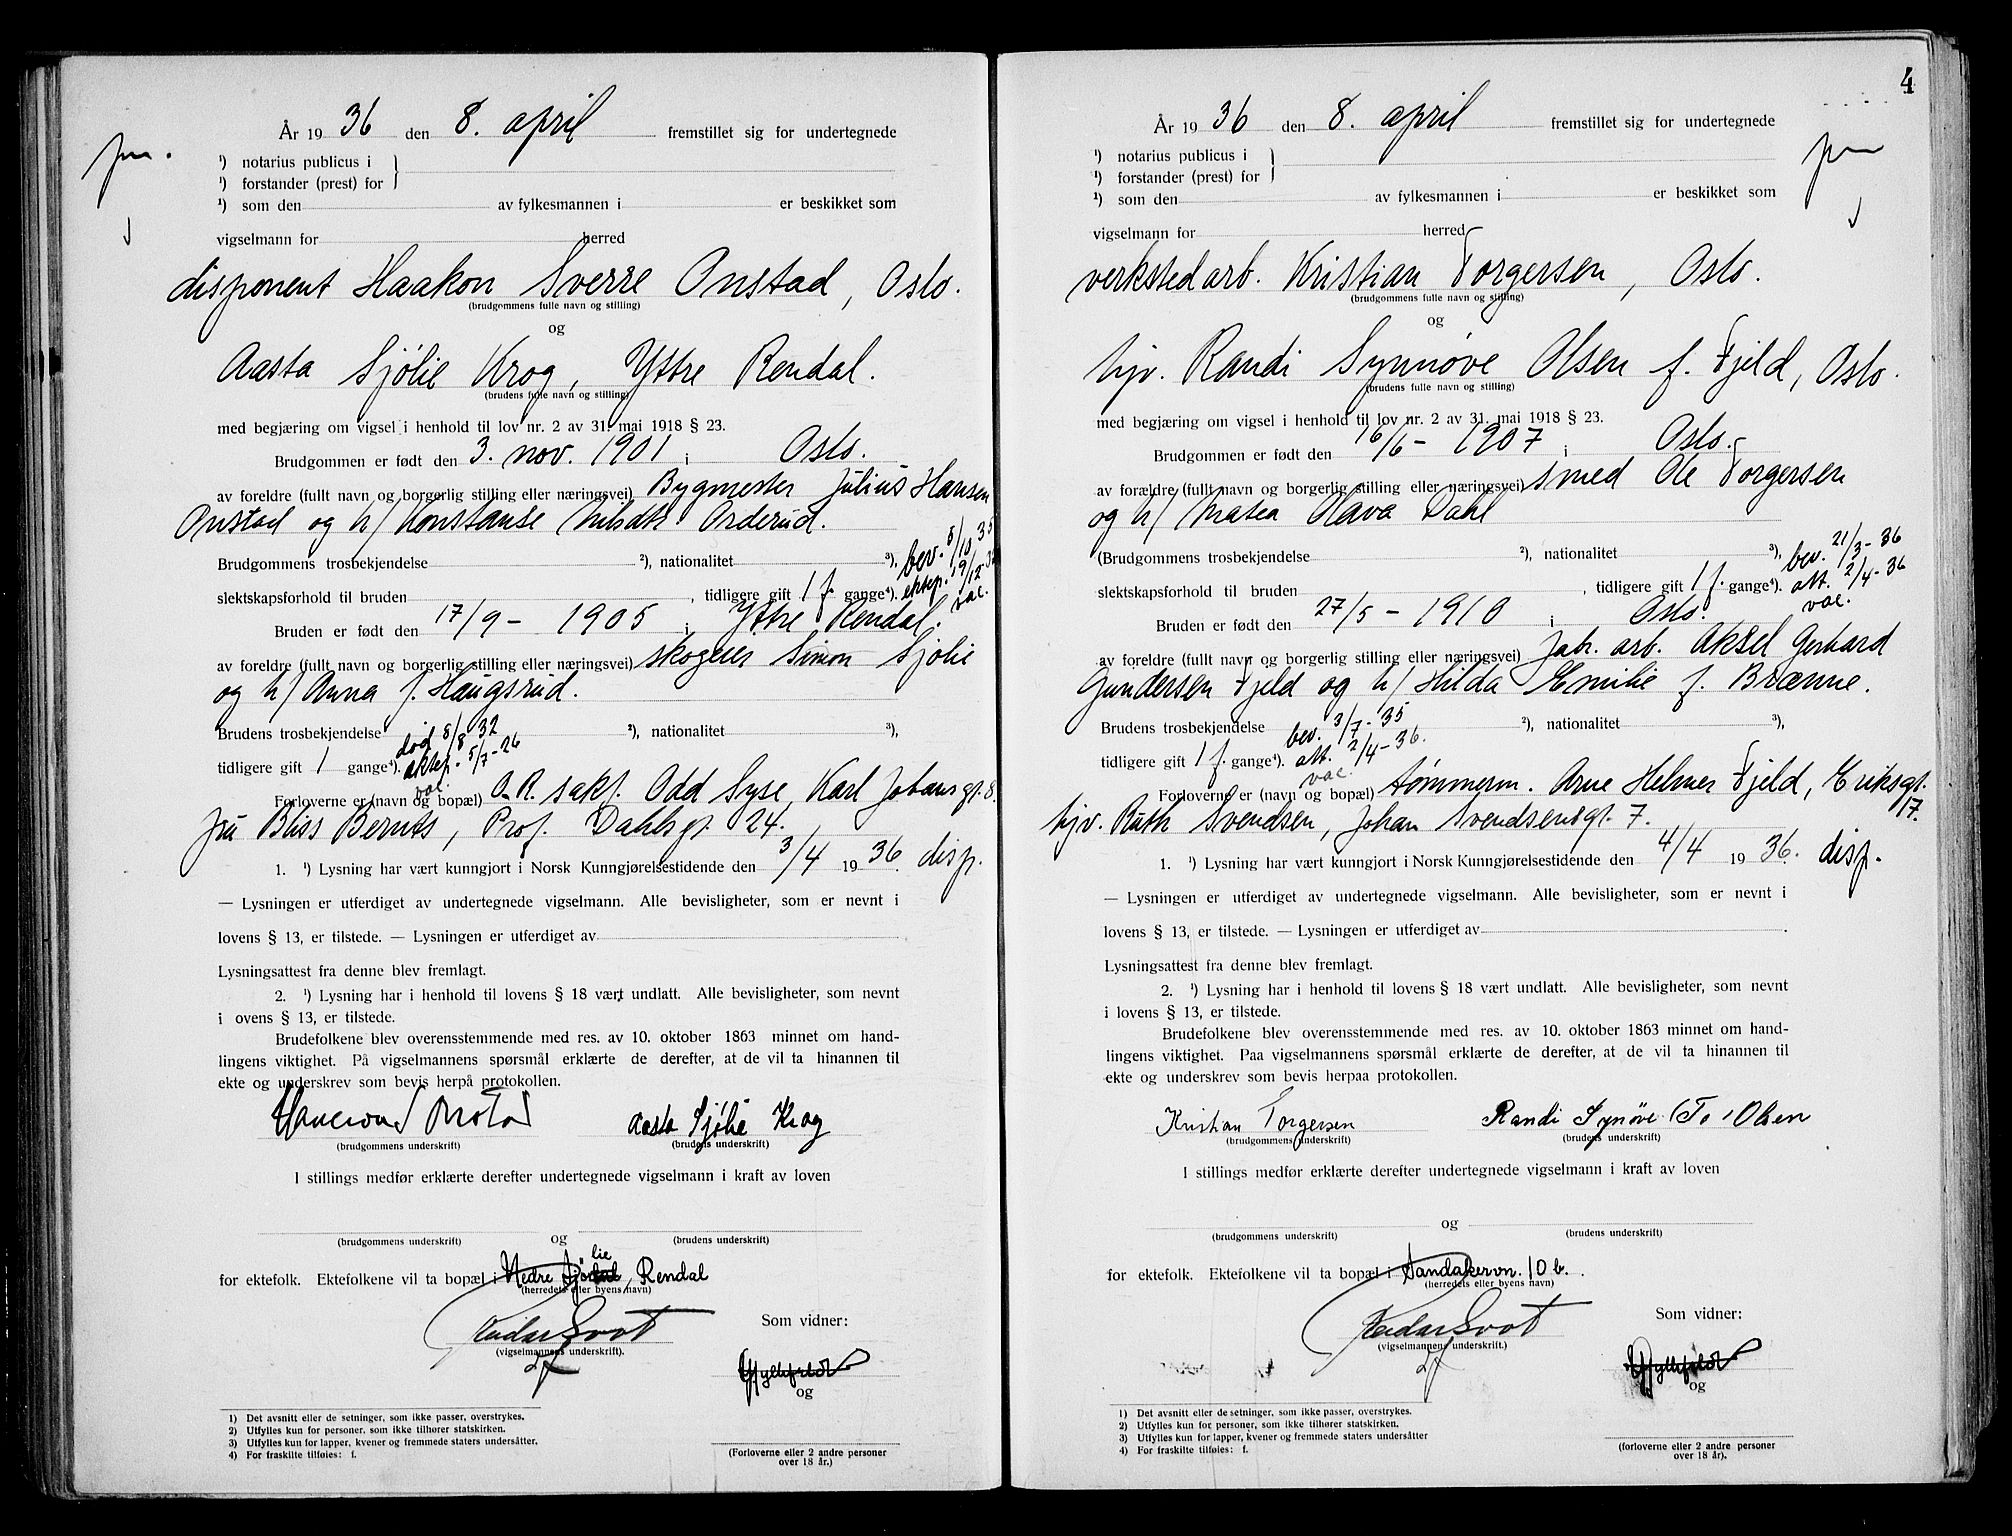 År 1936 den 8. april fremstillet sig for undertegnede
¹) notarius publicus i
¹) forstander (prest) for
¹) som den av fylkesmannen i er beskikket som
vigselmann for herred
disponent Haakon Sverre Onstad, Oslo.
(brudgommens fulle navn og stilling)
og
Aasta Sjölie Krog, Yttre Rendal.
(brudens fulle navn og stilling)
med begjæring om vigsel i henhold til lov nr. 2 av 31. mai 1918 § 23.
Brudgommen er født den 3. nov. 1901 i Oslo.
av foreldre (fullt navn og borgerlig stilling eller næringsvei) Bygmester Julius Hansen
Onstad og h/ Konstanse Arderud.
Brudgommens trosbekjendelse ²), nationalitet ³), bev. 5/10 35
slektskapsforhold til bruden , tidligere gift 1 f. gange⁴). aktep. 19/12-
vac.
Bruden er født den 17/9 - 1905 i Yttre Rendal.
av foreldre (fullt navn og borgerlig stilling eller næringsvei) skogeier Simon Sjölie
og h/ Anna f. Haugsrud.
Brudens trosbekjendelse ²), nationalitet ³),
död 8/8 32
tidligere gift 1 gange⁴). aktep. 5/7-26
vac.
Forloverne er (navn og bopæl) O.R. sakf. Odd Syse, Karl Johans gt. 8.
fru Bliss Bernts, Prof. Dahlsgt. 24.
1. ¹) Lysning har vært kunngjort i Norsk Kunngjørelsestidende den 3/4 1936. disp.
— Lysningen er utferdiget av undertegnede vigselmann. Alle bevisligheter, som er nevnt i
lovens § 13, er tilstede. — Lysningen er utferdiget av
Lysningsattest fra denne blev fremlagt.
2. ¹) Lysning har i henhold til lovens § 18 vært undlatt. Alle bevisligheter, som nevnt
i ovens § 13, er tilstede.
Brudefolkene blev overensstemmende med res. av 10. oktober 1863 minnet om hand-
lingens viktighet. På vigselmannens spørsmål erklærte de derefter, at de vil ta hinannen til
ekte og underskrev som bevis herpå protokollen.
Onstad Aasta Sjölie Krog
(brudgommens underskrift) (brudens underskrift)
I stillings medfør erklærte derefter undertegnede vigselmann i kraft av loven
og
(brudgommens underskrift) (brudens underskrift)
for ektefolk. Ektefolkene vil ta bopæl i Nedre Sjölie, Rendal
(herredets eller byens navn)
(vigselmannens underskrift).
Som vidner:
og
1) Det avsnitt eller de setninger, som ikke passer, overstrykes.
2) Utfylles kun for personer, som ikke tilhører statskirken.
3) Utfylles kun for lapper, kvener og fremmede staters undersåtter.
4) For fraskilte tilføies: f.
(Forloverne eller 2 andre personer
over 18 år.)
4
År 1936 den 8. april fremstillet sig for undertegnede
¹) notarius publicus i
¹) forstander (prest) for
¹) som den av fylkesmannen i er beskikket som
vigselmann for herred
verkstedarb. Kristian Torgersen, Oslo.
(brudgommens fulle navn og stilling)
og
hjv. Randi Synnøve Olsen f. Fjeld, Oslo.
(brudens fulle navn og stilling)
med begjæring om vigsel i henhold til lov nr. 2 av 31. mai 1918 § 23.
Brudgommen er født den 16/6 - 1907 i Oslo.
av forældre (fullt navn og borgerlig stilling eller næringsvei) smed Ole Torgersen
og h/ Matea Olava Dahl
(Brudgommens trosbekjendelse ²), nationalitet ³), bev. 21/3-36
slektskapsforhold til bruden , tidligere gift 1 f. gange⁴). att. 2/4-36
vac.
Bruden er født den 27/5 - 1910 i Oslo.
av foreldre (fullt navn og borgerlig stilling eller næringsvei) fabr. arb. Aksel Gerhard
Gundersen Fjeld og h/ Hilda Emilie f. Brænne.
Brudens trosbekjendelse ²), nationalitet ³),
bev. 3/7-35
tidligere gift 1 f. gange⁴). att. 2/4-36.
vac.
Forloverne er (navn og bopæl) tømmerm. Arne Helmer Fjeld, Eriksgt. 17.
hjv. Ruth Svendsen, Johan Svendsensgt. 7.
1. ¹) Lysning har vært kunngjort i Norsk Kunngjørelsestidende den 4/4 1936. disp.
— Lysningen er utferdiget av undertegnede vigselmann. Alle bevisligheter, som er nevnt i
lovens § 13, er tilstede. — Lysningen er utferdiget av
Lysningsattest fra denne blev fremlagt.
2. ¹) Lysning har i henhold til lovens § 18 vært undlatt. Alle bevisligheter, som nevnt
i lovens § 13, er tilstede.
Brudefolkene blev overensstemmende med res. av 10. oktober 1863 minnet om hand-
lingens viktighet. Paa vigselmannens spørsmål erklærte de derefter, at de vil ta hinannen til
ekte og underskrev som bevis herpaa protokollen.
Kristian Torgersen Randi Synøve Olsen
(brudgommens underskrift) (brudens underskrift)
I stillings medfør erklærte derefter undertegnede vigselmann i kraft av loven
og
(brudgommens underskrift) (brudens underskrift)
for ektefolk. Ektefolkene vil ta bopæl i Sandakervn. 10 b.
(herredets eller byens navn)
(vigselmannens underskrift.)
Som vidner:
og
1) Det avsnitt eller de setninger, som ikke passer, overstrykes.
2) Utfylles kun for personer, som ikke tilhører statskirken.
3) Utfylles kun for lapper, kvener og fremmede staters undersåtter
4) For fraskilte tilføies: f.
(forloverne eller 2 andre personer
over 18 år).